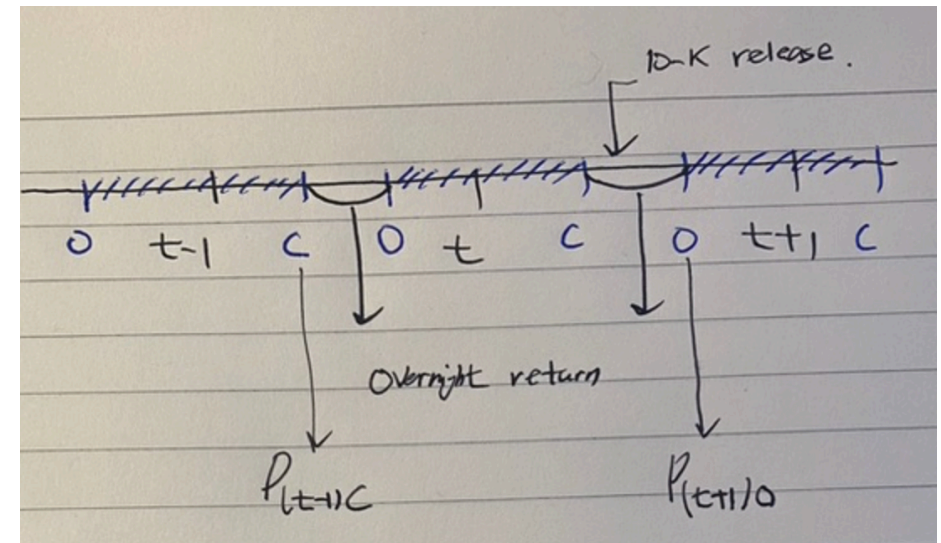 10-K release.
O t-1 C O t C O t+1 C
Overnight return
P(t-1)C P(t+1)O